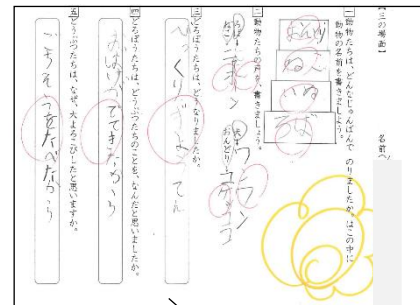 【三の場面】
名前
一 動物たちは、どんなじゅんばんで のりましたか。はこの中に
動物の名前を書きましょう。
おんどり
ねこ
いぬ
ろば
二 動物たちの声を、書きましょう。
ろば
犬 ワンワン
ねこ
おんどり コケコッコ
三 どろぼうたちは、どうなりましたか。
びっくりぎょうてん
四 どろぼうたちは、どうぶつたちのことを、なんだと思いましたか。
おばけがでてきたから
五 どうぶつたちは、なぜ、大よろこびしたと思いますか。
ごちそうをたべたから